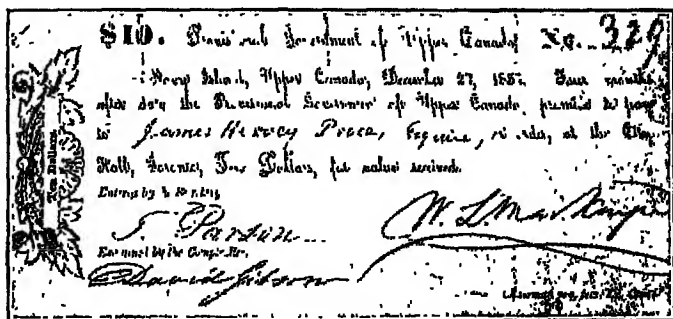 $10. Provisional Government of Upper Canada, No. 329
Navy Island, Upper Canada, December 27, 1837. Four months
after date the Provisional Government of Upper Canada promise to pay
to James Hervey Price, Esquire, or order, at the City
Hall, Toronto, Ten Dollars, for value received.
Entered by the
T. Parson
Examined by the Comptroller,
David Gibson
W. L. Mackenzie
Ten Dollars